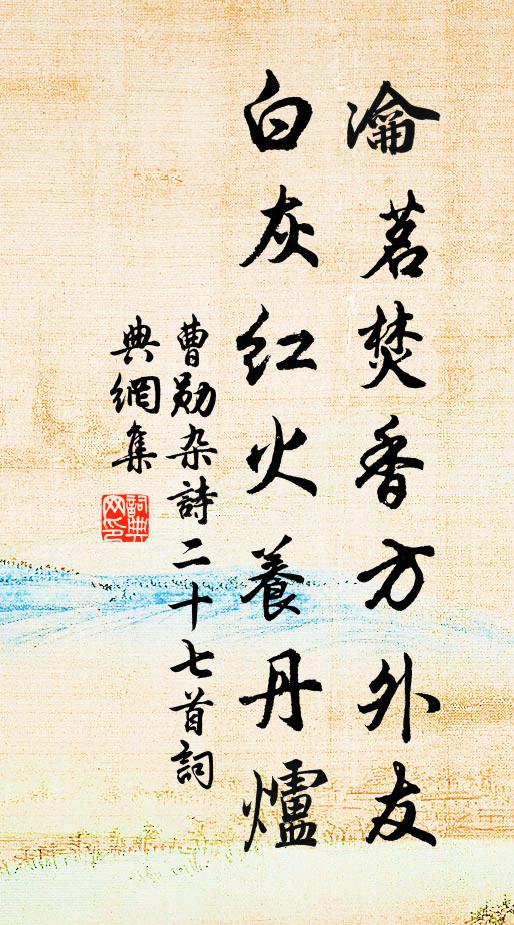 瀹茗焚香方外友
白灰红火養丹爐
曹勛杂詩二十七首詞
典網集
詞典网印